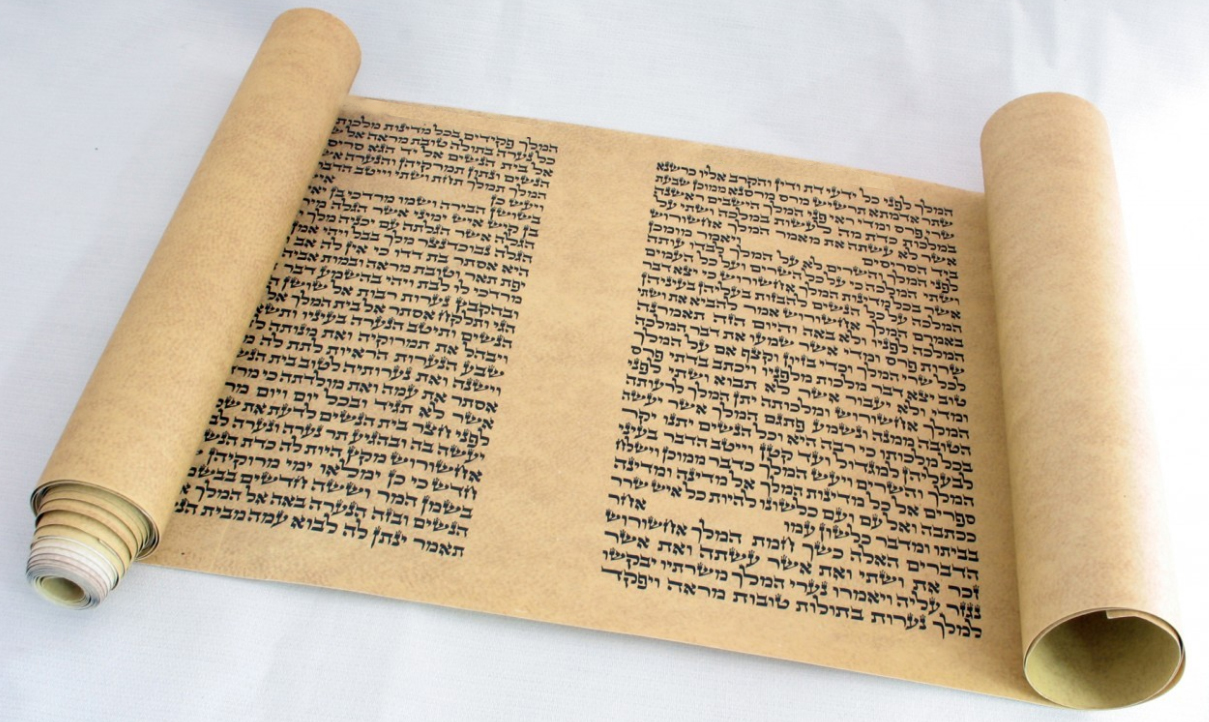 המלך לפני כל ידעי דת ודין והקרב אליו כרשנא
שתר אדמתא תרשיש מרס מרסנא ממוכן שבעת
שרי פרס ומדי ראי פני המלך הישבים ראשנה
במלכות כדת מה לעשות במלכה ושתי על
אשר לא עשתה את מאמר המלך אחשורוש
ביד הסריסים ויאמר מומכן
לפני המלך והשרים לא על המלך לבדו עותה
ושתי המלכה כי על כל השרים ועל כל העמים
אשר בכל מדינות המלך אחשורוש כי יצא דבר
המלכה על כל הנשים להבזות בעליהן בעיניהן
באמרם המלך אחשורוש אמר להביא את ושתי
המלכה לפניו ולא באה והיום הזה תאמרנה
שרות פרס ומדי אשר שמעו את דבר המלכה
לכל שרי המלך וכדי בזיון וקצף אם על המלך
טוב יצא דבר מלכות מלפניו ויכתב בדתי פרס
ומדי ולא יעבור אשר לא תבוא ושתי לפני
המלך אחשורוש ומלכותה יתן המלך לרעותה
הטובה ממנה ונשמע פתגם המלך אשר יעשה
בכל מלכותו כי רבה היא וכל הנשים יתנו יקר
לבעליהן למגדול ועד קטן וייטב הדבר בעיני
המלך והשרים ויעש המלך כדבר ממוכן וישלח
ספרים אל כל מדינות המלך אל מדינה ומדינה
ככתבה ואל עם ועם כלשונו להיות כל איש שרר
בביתו ומדבר כלשון עמו אחר
הדברים האלה כשך חמת המלך אחשורוש
זכר את ושתי ואת אשר עשתה ואת אשר
נגזר עליה ויאמרו נערי המלך משרתיו יבקשו
למלך נערות בתולות טובות מראה ויפקד
המלך פקידים בכל מדינות מלכות
כל נערה בתולה טובת מראה אל
אל בית הנשים אל יד הגא
הנשים ונתון תמרקיהן והנערה
המלך תמלך תחת ושתי וייטב
ויעש כן
בשושן הבירה ושמו מרדכי בן
בן קיש איש ימיני אשר הגלה
הגלה אשר הגלתה עם יכניה מלך
הגלה נבוכדנצר מלך בבל ויהי אמן
היא אסתר בת דדו כי אין לה אב
יפת תאר וטובת מראה ובמות אביה
מרדכי לו לבת ויהי בהשמע דבר
ובהקבץ נערות רבות אל שושן
הגי ותלקח אסתר אל בית המלך
הנשים ותיטב הנערה בעיניו
ויבהל את תמרוקיה ואת מנותה
שבע הנערות הראיות לתת לה
וישנה ואת נערותיה לטוב בית
אסתר את עמה ואת מולדתה כי
אשר לא תגיד ובכל יום ויום
לפני חצר בית הנשים לדעת את
יעשה בה ובהגיע תר נערה ונערה
אחשורוש מקץ היות לה כדת
חדש כי כן ימלאו ימי מרוקיהן
בשמן המר וששה חדשים
הנשים ובזה הנערה באה אל המלך
תאמר ינתן לה לבוא עמה מבית